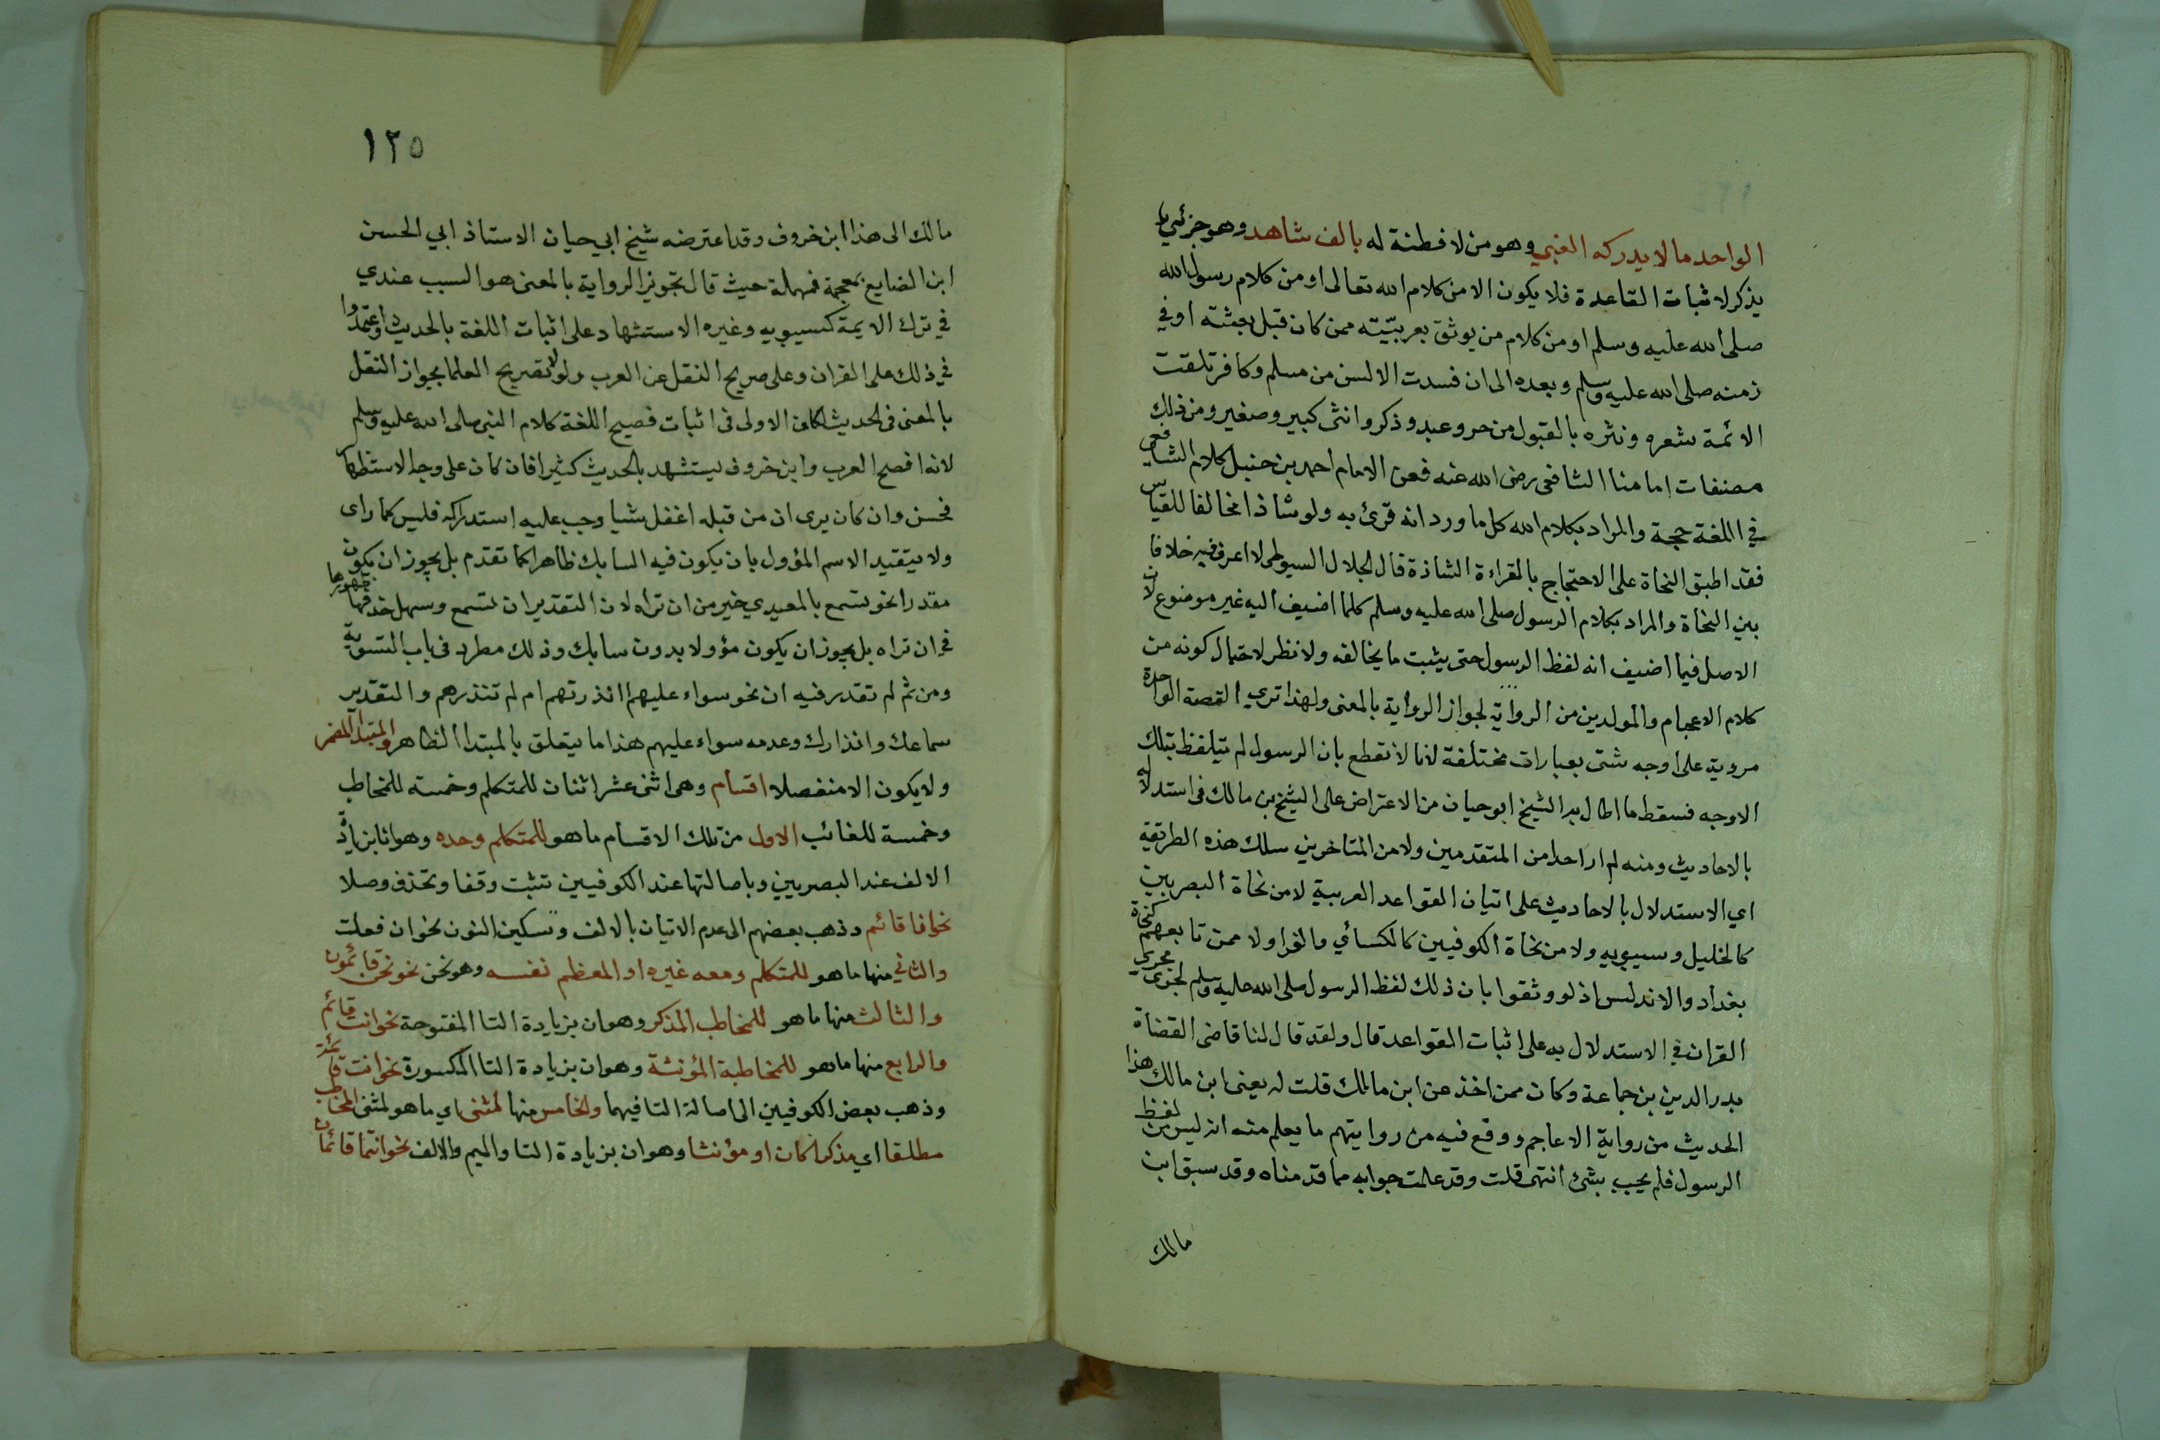 الواحد ما لا يدركه الغبي وهو من لا فطنة له بالف شاهد وهو جزئي
يذكر لاثبات القاعدة فلا يكون الا من كلام الله تعالى او من كلام رسول الله
صلى الله عليه وسلم او من كلام من يوثق بعربيّته ممن كان قبل بعثته او في
زمنه صلى الله عليه وسلم وبعده الى ان فسدت الالسن من مسلم وكافر تلقت
الائمة شعره ونثره بالقبول من حر وعبد وذكر وانثى كبير وصغير ومن ذلك
مصنفات امامنا الشافعى رضى الله عنه فعن الامام احمد بن حنبل كلام الشافعى
في اللغة حجة والمراد بكلام الله كل ما ورد انه قرئ به ولو شاذا مخالفا للقياس
فقد اطبق النحاة على الاحتجاج بالقراءة الشاذة قال الجلال السيوطى لا اعرف فيه خلافا
بين النحاة والمراد بكلام الرسول صلى الله عليه وسلم كلما اضيف اليه غير موضوع لان
الاصل فيما اضيف انه لفظ الرسول حتى يثبت ما يخالفه ولا نظر لاحتمال كونه من
كلام الاعجام والمولدين من الرواة لجواز الرواية بالمعنى ولهذا تري القصة الواحدة
مروية على اوجه شتى بعبارات مختلفة لانا لا نقطع بان الرسول لم يتلفظ بتلك
الاوجه فسقط ما اطال به الشيخ ابو حيان من الاعتراض على الشيخ بن مالك فى استدلاله
بالاحاديث ومنه لم ار احدا من المتقدمين ولا من المتاخرين سلك هذه الطريقة
اي الاستدلال بالاحاديث على اتيان القواعد العربية لا من نحاة البصريين
كالخليل وسيبويه ولا من نحاة الكوفيين كالكسائي والفرا ولا ممن تابعهم كنحاة
بغداد والاندلس اذ لو وثقوا بان ذلك لفظ الرسول صلى الله عليه وسلم لجرى مجرى
القران في الاستدلال به على اثبات القواعد قال ولقد قال لنا قاضى القضاة
بدر الدين بن جماعة وكان ممن اخذ عن ابن مالك قلت له يعنى ابن مالك هذا
الحديث من رواية الاعاجم ووقع فيه من روايتهم ما يعلم منه انه ليس من لفظ
الرسول فلم يجب بشئ انتهى قلت وقد علمت جوابه مما قدمناه وقد سبق ابن
مالك
١٢٥
مالك الى هذا ابن خروف وقد اعترضه شيخ ابي حيان الاستاذ ابي الحسن
ابن الضايع بمعجمة فمهملة حيث قال تجويز الرواية بالمعنى هو السبب عندي
في ترك الايمة كسيبويه وغيره الاستشهاد على اثبات اللغة بالحديث واعتمدوا
في ذلك على القران وعلى صريح النقل عن العرب ولولا تصريح العلما بجواز النقل
بالمعنى فى الحديث لكان الاولى فى اثبات فصيح اللغة كلام النبى صلى الله عليه وسلم
لانه افصح العرب وابن خروف يستشهد بالحديث كثيرا فان كان على وجه الاستظهار
فحسن وان كان يرى ان من قبله اغفل شيا وجب عليه استدراكه فليس كما راى
ولا يتقيد الاسم المؤول بان يكون فيه السابك ظاهرا كما تقدم بل يجوز ان يكون
مقدرا نحو تسمع بالمعيدي خير من ان تراه لان التقدير ان تسمع وسهل حذفها ظهورها
في ان تراه بل يجوز ان يكون مؤولا بدون سابك وذلك مطرد فى باب التسوية
ومن ثم لم تقدر فيه ان نحو سواء عليهم اانذرتهم ام لم تنذرهم والتقدير
سماعك وانذارك وعدمه سواء عليهم هذا ما يتعلق بالمبتدا الظاهر والمبتدا المضمر
ولا يكون الا منفصلا اقسام وهى اثنى عشر اثنان للمتكلم وخمسة للمخاطب
وخمسة للغائب الاول من تلك الاقسام ما هو للمتكلم وحده وهو انا بزيادة
الالف عند البصريين وباصالتها عند الكوفيين تثبت وقفا وتحذف وصلا
نحو انا قائم وذهب بعضهم الى عدم الاتيان بالالف وتسكين النون نحو ان فعلت
والثاني منها ما هو للمتكلم ومعه غيره او المعظم نفسه وهو نحن نحو نحن قائمون
والثالث منها ما هو للمخاطب المذكر وهو ان بزيادة التا المفتوحة نحو انت قائم
والرابع منها ما هو للمخاطبة المؤنثة وهو ان بزيادة التا المكسورة نحو انت قائمة
وذهب بعض الكوفيين الى اصالة التا فيهما والخامس منها لمثنى اي ما هو لمثنى المخاطب
مطلقا اي مذكرا كان او مؤنثا وهو ان بزيادة التا والميم والالف نحو انتما قائمان